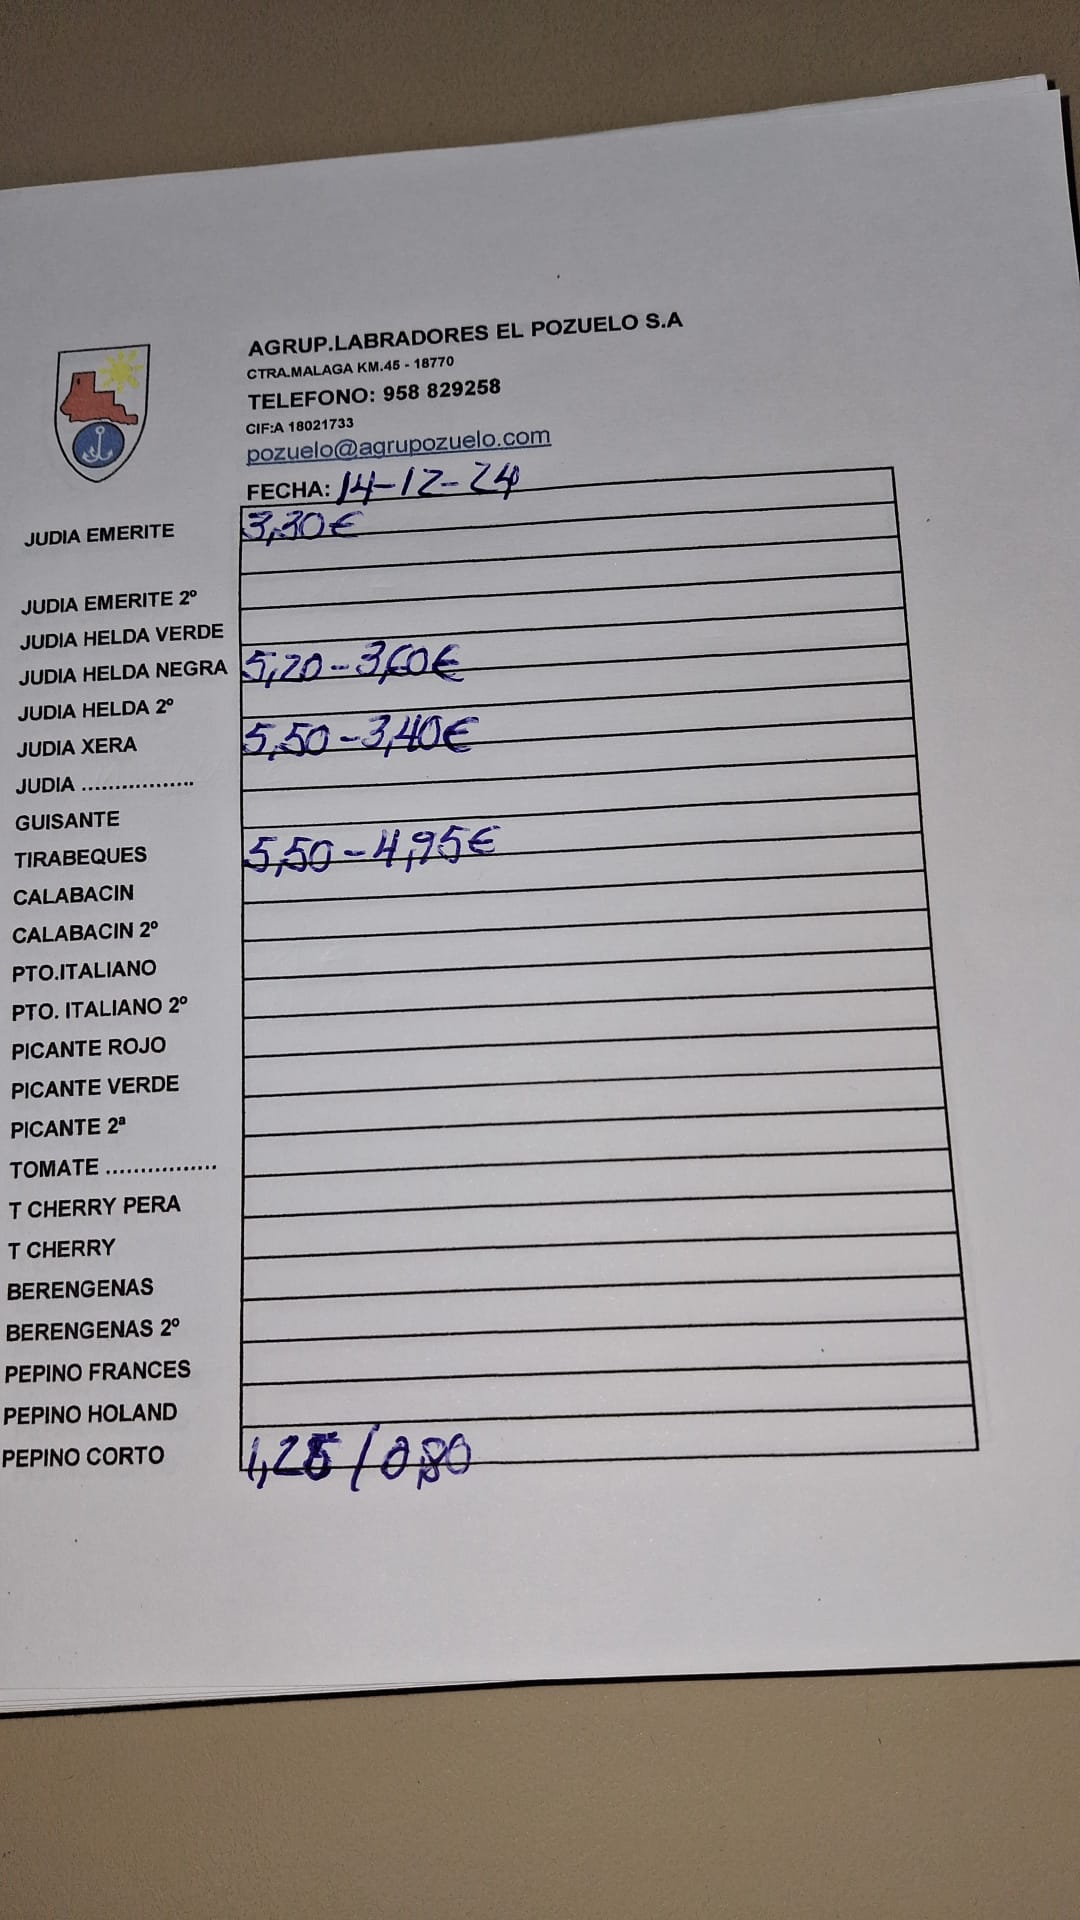 AGRUP.LABRADORES EL POZUELO S.A
CTRA.MALAGA KM.45 - 18770
TELEFONO: 958 829258
CIF:A 18021733
pozuelo@agrupozuelo.com
FECHA: 14-12-24
JUDIA EMERITE 3,30€
JUDIA EMERITE 2º
JUDIA HELDA VERDE
JUDIA HELDA NEGRA 5,20-3,60€
JUDIA HELDA 2º
JUDIA XERA 5,50-3,40€
JUDIA .................
GUISANTE
TIRABEQUES 5,50-4,95€
CALABACIN
CALABACIN 2º
PTO.ITALIANO
PTO. ITALIANO 2º
PICANTE ROJO
PICANTE VERDE
PICANTE 2ª
TOMATE ................
T CHERRY PERA
T CHERRY
BERENGENAS
BERENGENAS 2º
PEPINO FRANCES
PEPINO HOLAND
PEPINO CORTO 1,25/0,80